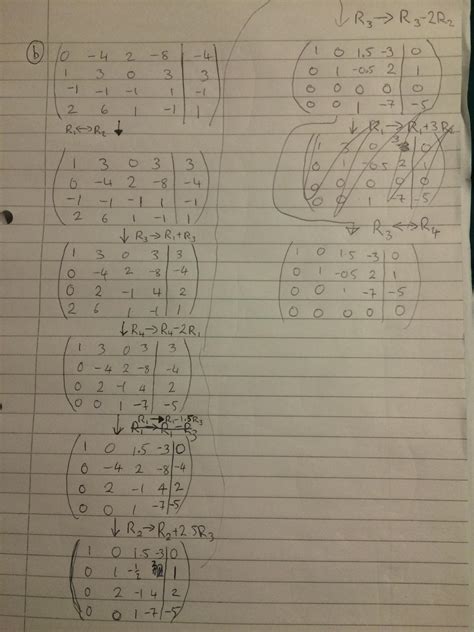 b
0 -4 2 -8 | -4
1 3 0 3 | 3
-1 -1 -1 1 | -1
2 6 1 -1 | 1
R₁↔R₂ ↓
1 3 0 3 | 3
0 -4 2 -8 | -4
-1 -1 -1 1 | -1
2 6 1 -1 | 1
↓ R₃→R₁+R₃
1 3 0 3 | 3
0 -4 2 -8 | -4
0 2 -1 4 | 2
2 6 1 -1 | 1
↓ R₄→R₄-2R₁
1 3 0 3 | 3
0 -4 2 -8 | -4
0 2 -1 4 | 2
0 0 1 -7 | -5
R₁→R₁-1.5R₃
↓ R₁→R₁-R₃
1 0 1.5 -3 | 0
0 -4 2 -8 | -4
0 2 -1 4 | 2
0 0 1 -7 | -5
↓ R₂→R₂+2.5R₃
1 0 1.5 -3 | 0
0 1 -½ 2 | 1
0 2 -1 4 | 2
0 0 1 -7 | -5
↓ R₃→R₃-2R₂
1 0 1.5 -3 | 0
0 1 -0.5 2 | 1
0 0 0 0 | 0
0 0 1 -7 | -5
↓ R₁→R₁+3R₂
0 1 -0.5 2 | 1
0 0 0 0 | 0
0 0 1 -7 | -5
↓ R₃↔R₄
1 0 1.5 -3 | 0
0 1 -0.5 2 | 1
0 0 1 -7 | -5
0 0 0 0 | 0